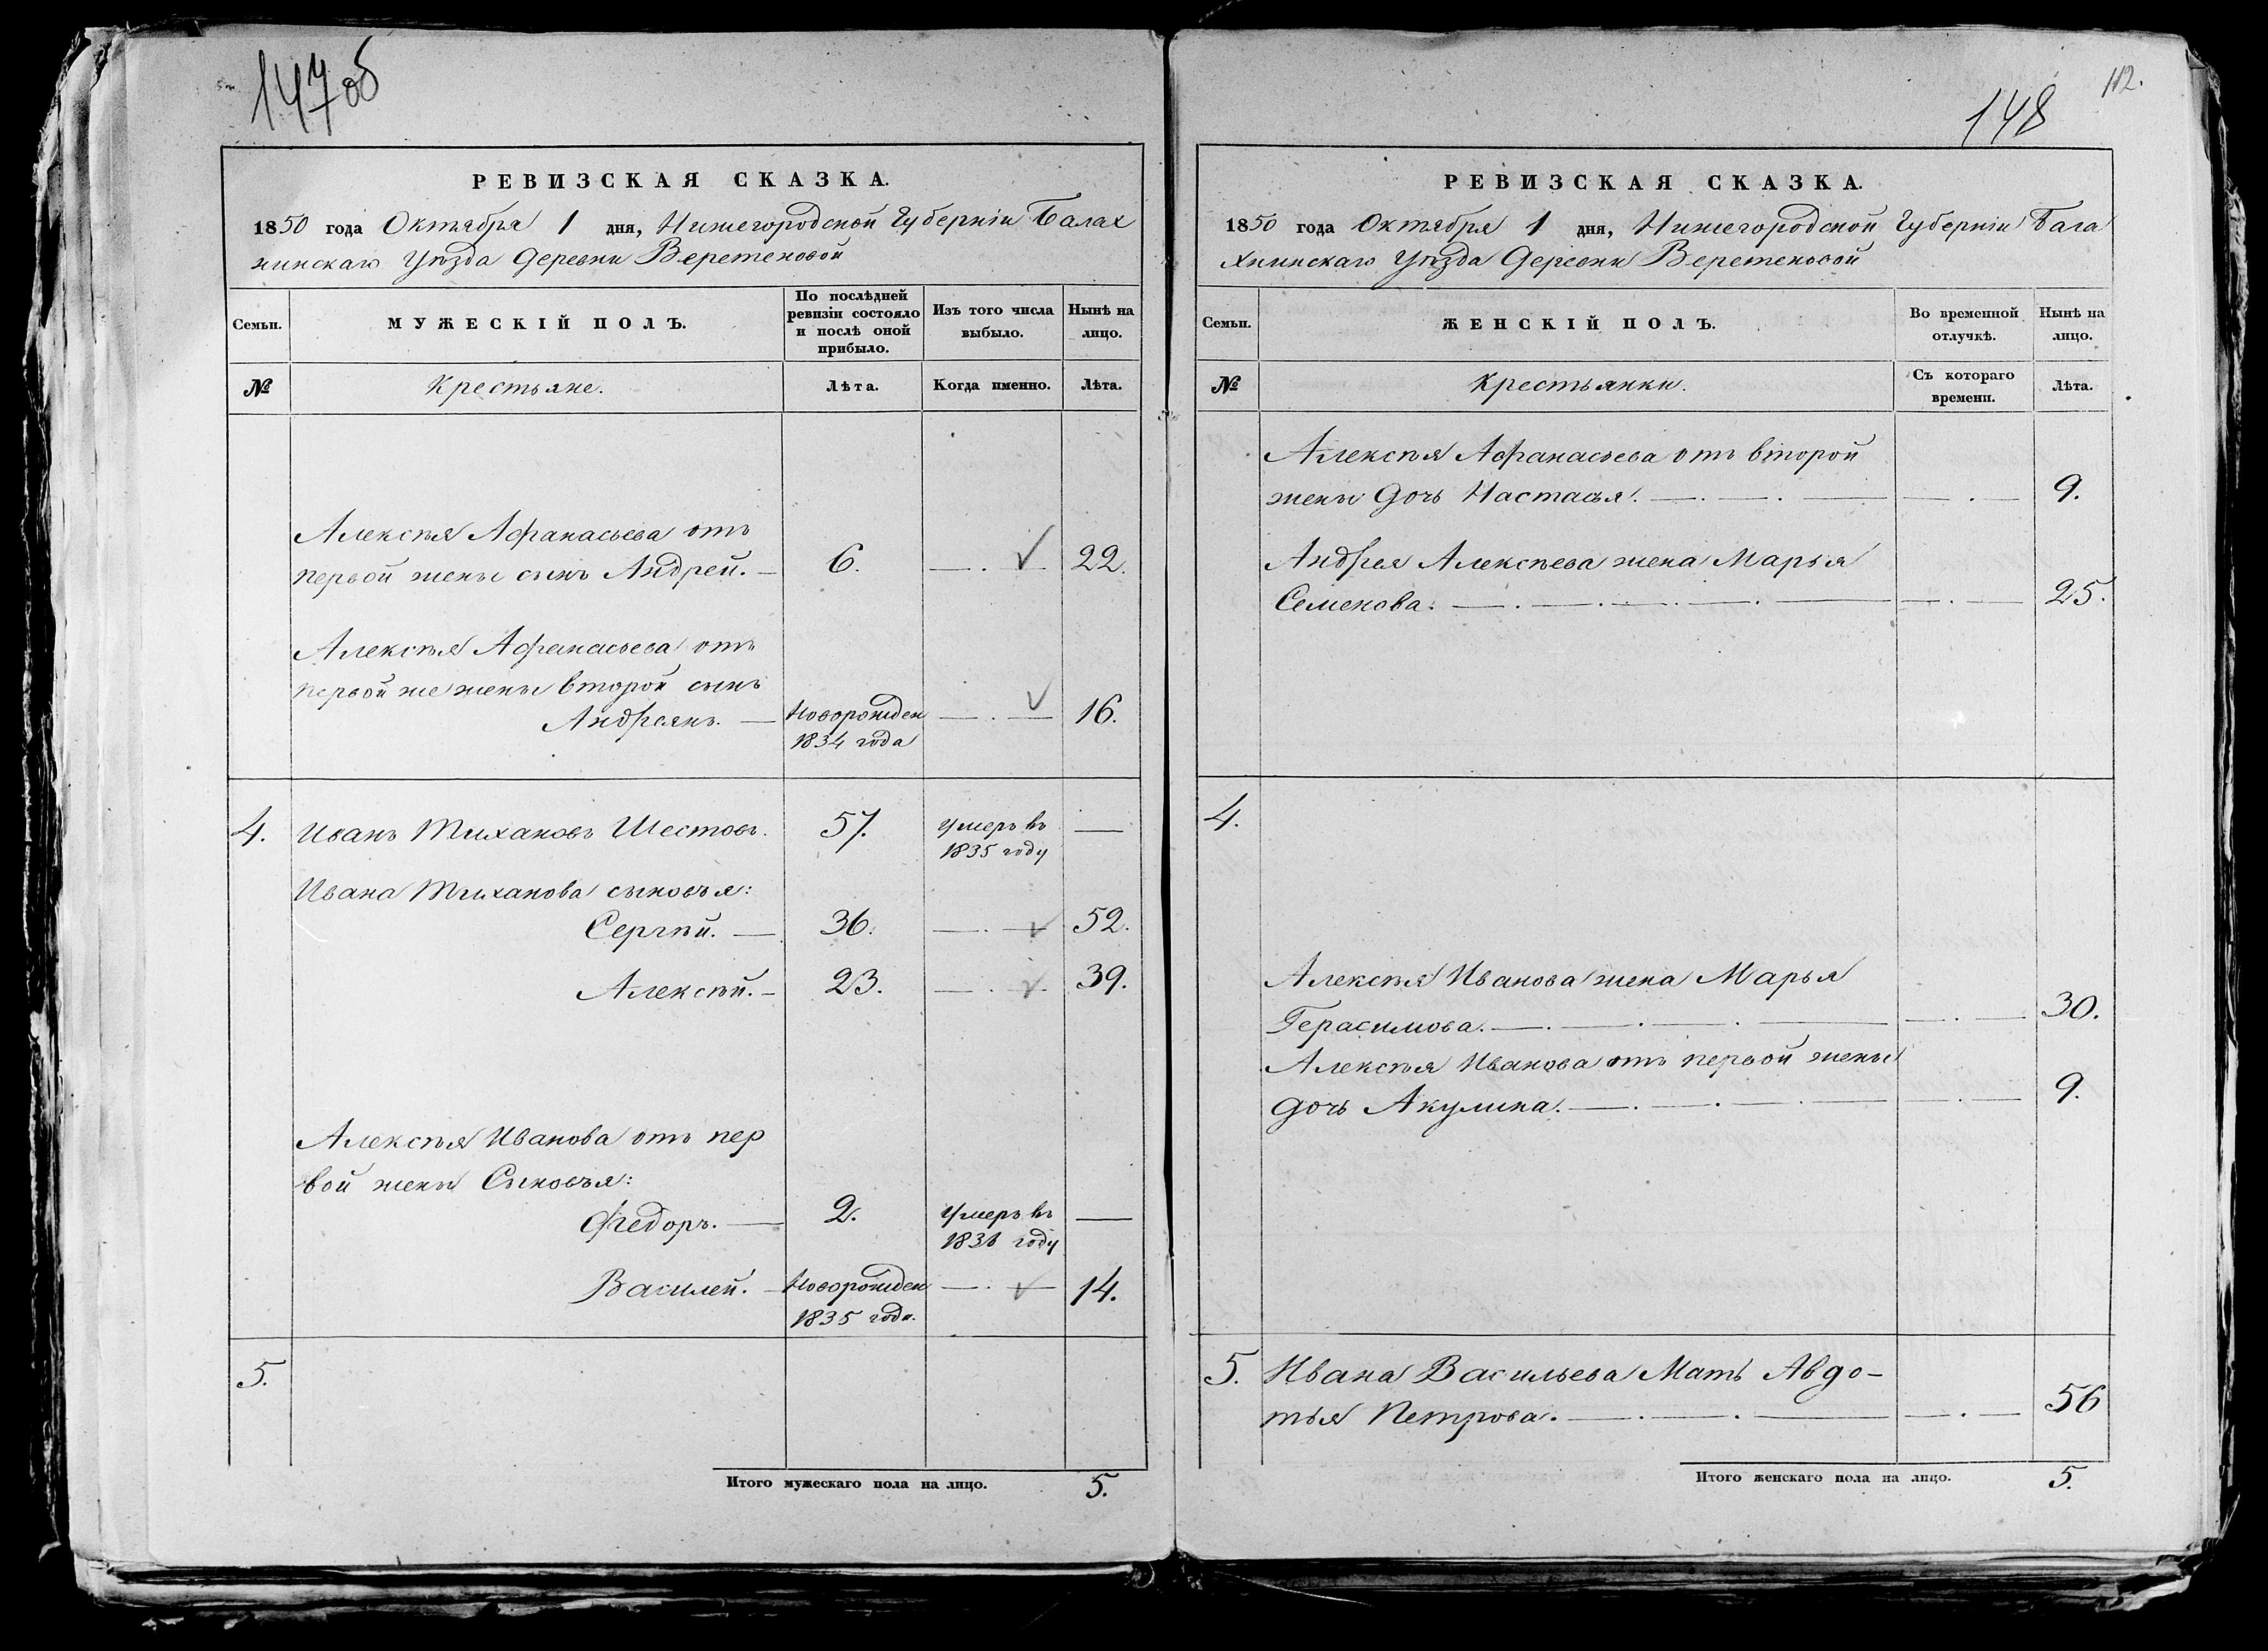 147об
РЕВИЗСКАЯ СКАЗКА.
1850 года Октября 1 дня, Нижегородской Губерніи Балах
нинскаго Уѣзда деревни Веретеновой
Семьи.
МУЖЕСКІЙ ПОЛЪ.
По послѣдней
ревизіи состояло
и послѣ оной
прибыло.
Изъ того числа
выбыло.
Нынѣ на
лицо.
№
Крестьяне.
Лѣта.
Когда именно.
Лѣта.
Алексѣя Афанасьева отъ
первой жены сынъ Андрей. 6. 22.
Алексѣя Афанасьева отъ
первой же жены второй сынъ
Андреянъ. Новорожден 16.
1834 года
4. Иванъ Тихановъ Шестовъ. 57. умеръ въ
1835 году
Ивана Тиханова сыновья:
Сергѣй. 36. 52.
Алексѣй. 23. 39.
Алексѣя Иванова отъ пер
вой жены Сыновья:
Федоръ. 2. умеръ въ
1836 году
Василей. Новорожден 14.
1835 года.
5.
Итого мужескаго пола на лицо. 5.
112.
148
РЕВИЗСКАЯ СКАЗКА.
1850 года Октября 1 дня, Нижегородской Губерніи Бала
хнинскаго Уѣзда деревни Веретеновой
Семьи.
ЖЕНСКІЙ ПОЛЪ.
Во временной
отлучкѣ.
Нынѣ на
лицо.
№
Крестьянки.
Съ котораго
времени.
Лѣта.
Алексѣя Афанасьева отъ второй
жены дочь Настасья. 9.
Андрея Алексѣева жена Марья
Семенова. 25.
4.
Алексѣя Иванова жена Марья
Герасимова. 30.
Алексѣя Иванова отъ первой жены
дочь Акулина. 9.
5. Ивана Васильева Мать Авдо-
тья Петрова. 56
Итого женскаго пола на лицо. 5.